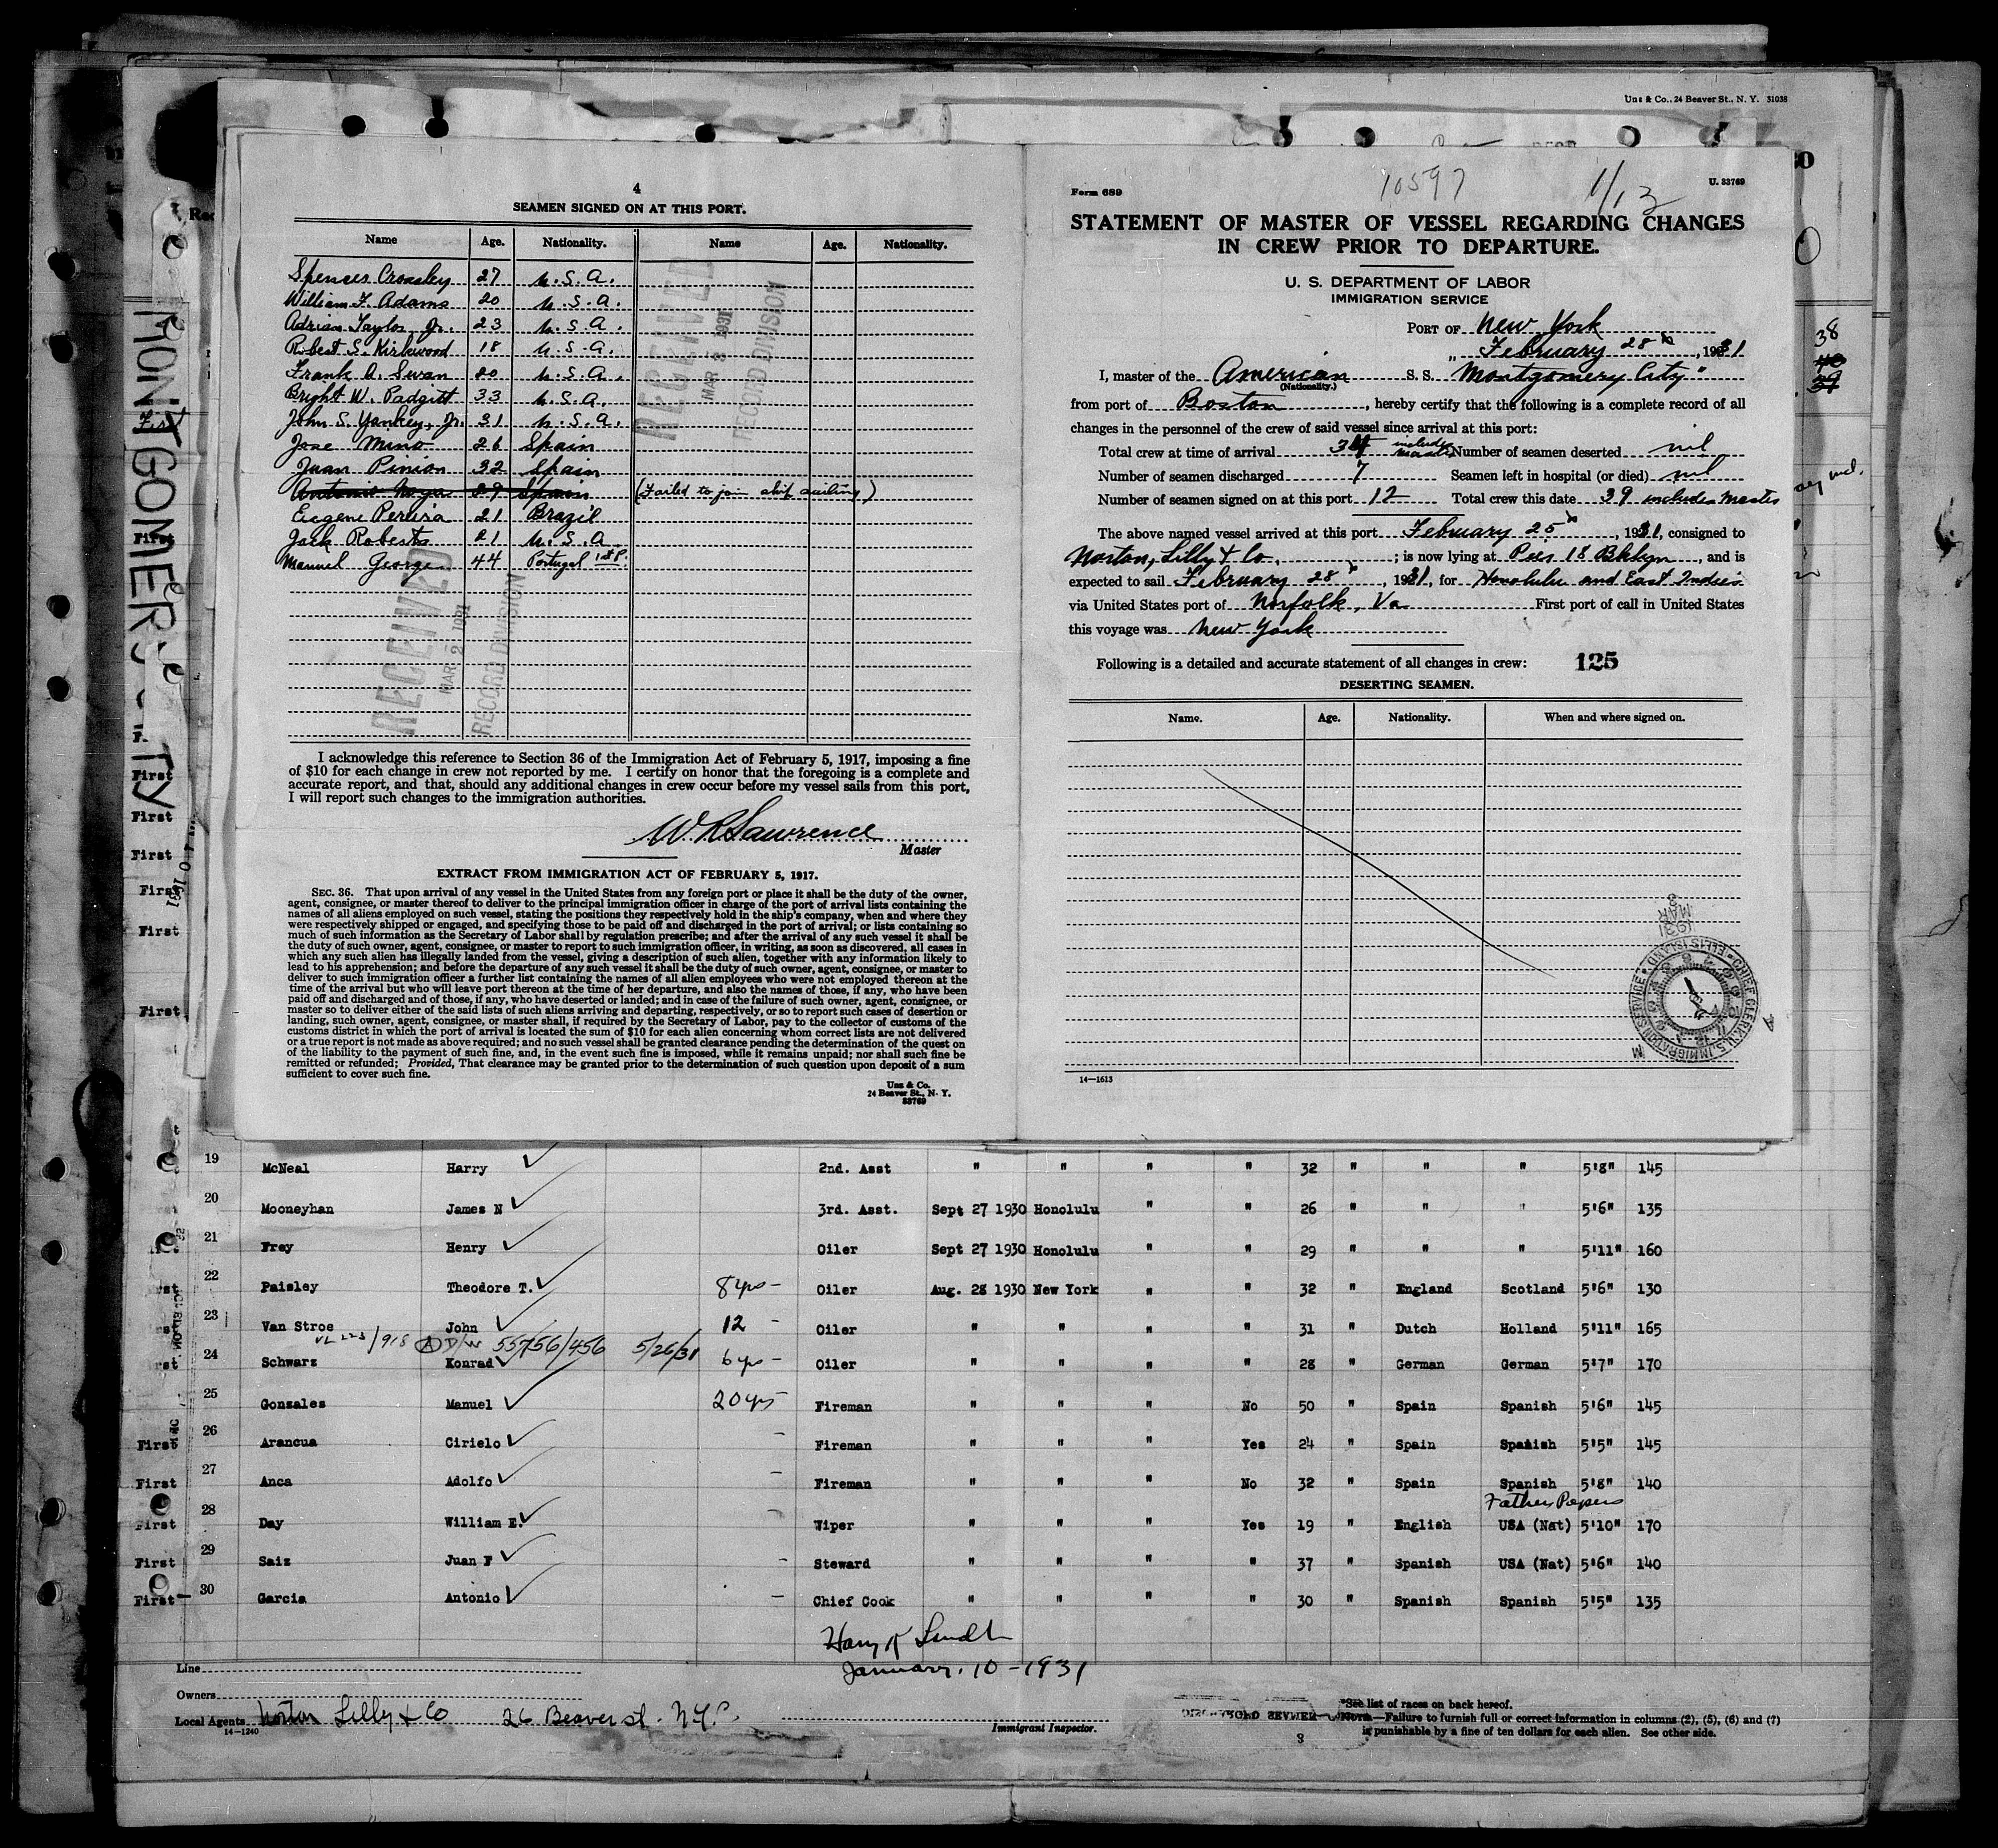 Uns & Co., 24 Beaver St., N. Y. 31038
MONTGOMERY CITY
4
SEAMEN SIGNED ON AT THIS PORT.
Name Age. Nationality. Name Age. Nationality.
Spencer Crossley 27 U.S.A.
William F. Adams 20 U.S.A.
Adrian Taylor Jr. 23 U.S.A.
Robert S. Kirkwood 18 U.S.A.
Frank A. Swan 20 U.S.A.
Bright W. Padgitt 33 U.S.A.
John S. Yankey, Jr. 31 U.S.A.
Jose Mino 26 Spain
Juan Pinion 32 Spain
Antonio Noya 29 Spain (Failed to join ship sailing)
Eugene Pereira 21 Brazil
Jack Roberts 21 U.S.A
Manuel George 44 Portugal 1st P.
RECEIVED
MAR 3 1931
RECORD DIVISION
RECEIVED
MAR 2 1931
RECORD DIVISION
I acknowledge this reference to Section 36 of the Immigration Act of February 5, 1917, imposing a fine
of $10 for each change in crew not reported by me. I certify on honor that the foregoing is a complete and
accurate report, and that, should any additional changes in crew occur before my vessel sails from this port,
I will report such changes to the immigration authorities.
W. R. Lawrence
Master
EXTRACT FROM IMMIGRATION ACT OF FEBRUARY 5, 1917.
SEC. 36. That upon arrival of any vessel in the United States from any foreign port or place it shall be the duty of the owner,
agent, consignee, or master thereof to deliver to the principal immigration officer in charge of the port of arrival lists containing the
names of all aliens employed on such vessel, stating the positions they respectively hold in the ship's company, when and where they
were respectively shipped or engaged, and specifying those to be paid off and discharged in the port of arrival; or lists containing so
much of such information as the Secretary of Labor shall by regulation prescribe; and after the arrival of any such vessel it shall be
the duty of such owner, agent, consignee, or master to report to such immigration officer, in writing, as soon as discovered, all cases in
which any such alien has illegally landed from the vessel, giving a description of such alien, together with any information likely to
lead to his apprehension; and before the departure of any such vessel it shall be the duty of such owner, agent, consignee, or master to
deliver to such immigration officer a further list containing the names of all alien employees who were not employed thereon at the
time of the arrival but who will leave port thereon at the time of her departure, and also the names of those, if any, who have been
paid off and discharged and of those, if any, who have deserted or landed; and in case of the failure of such owner, agent, consignee, or
master so to deliver either of the said lists of such aliens arriving and departing, respectively, or so to report such cases of desertion or
landing, such owner, agent, consignee, or master shall, if required by the Secretary of Labor, pay to the collector of customs of the
customs district in which the port of arrival is located the sum of $10 for each alien concerning whom correct lists are not delivered
or a true report is not made as above required; and no such vessel shall be granted clearance pending the determination of the quest on
of the liability to the payment of such fine, and, in the event such fine is imposed, while it remains unpaid; nor shall such fine be
remitted or refunded; Provided, That clearance may be granted prior to the determination of such question upon deposit of a sum
sufficient to cover such fine.
Uns & Co.
24 Beaver St., N. Y.
33769
10597 1/13
Form 689 U. 33769
STATEMENT OF MASTER OF VESSEL REGARDING CHANGES
IN CREW PRIOR TO DEPARTURE.
U. S. DEPARTMENT OF LABOR
IMMIGRATION SERVICE
PORT OF New York
" February 28th, 1931
I, master of the American S. S. Montgomery City"
(Nationality.)
from port of Boston, hereby certify that the following is a complete record of all
changes in the personnel of the crew of said vessel since arrival at this port:
Total crew at time of arrival 34 includes Master Number of seamen deserted nil
Number of seamen discharged 7 Seamen left in hospital (or died) nil
Number of seamen signed on at this port 12 Total crew this date 39 includes Master
The above named vessel arrived at this port February 25th, 1931, consigned to
Norton, Lilly & Co.; is now lying at Pier 18 Bklyn, and is
expected to sail February 28th, 1931, for Honolulu and East Indies
via United States port of Norfolk, Va First port of call in United States
this voyage was New York
Following is a detailed and accurate statement of all changes in crew: 125
DESERTING SEAMEN.
Name. Age. Nationality. When and where signed on.
1931 MAR 3
CHIEF CLERK U.S. IMMIGRATION SERVICE ELLIS ISLAND
14—1613
38
19 McNeal Harry 2nd. Asst " " " " 32 " " " 5'8" 145
20 Mooneyhan James N 3rd. Asst. Sept 27 1930 Honolulu " " 26 " " " 5'6" 135
21 Frey Henry Oiler Sept 27 1930 Honolulu " " 29 " " " 5'11" 160
22 Paisley Theodore T. 8 yrs - Oiler Aug. 28 1930 New York " " 32 " England Scotland 5'6" 130
23 Van Stroe John 12 - Oiler " " " " 31 " Dutch Holland 5'11" 165
55756/456 5/26/31
24 Schwarz Konrad 6 yrs - Oiler " " " " 28 " German German 5'7" 170
25 Gonzales Manuel 20 yrs Fireman " " " No 50 " Spain Spanish 5'6" 145
First 26 Arancua Cirielo - Fireman " " " Yes 24 " Spain Spanish 5'5" 145
First 27 Anca Adolfo - Fireman " " " No 32 " Spain Spanish 5'8" 140
Father Papers
First 28 Day William E. Wiper " " " Yes 19 " English USA (Nat) 5'10" 170
First 29 Saiz Juan F - Steward " " " " 37 " Spanish USA (Nat) 5'6" 140
First 30 Garcia Antonio - Chief Cook " " " " 30 " Spanish Spanish 5'5" 135
January 10-1931
Line
Owners
Local Agents Norton Lilly & Co 26 Beaver st. N.Y.C.
14-1240
Immigrant Inspector.
*See list of races on back hereof.
NOTE.—Failure to furnish full or correct information in columns (2), (5), (6) and (7)
is punishable by a fine of ten dollars for each alien. See other side.